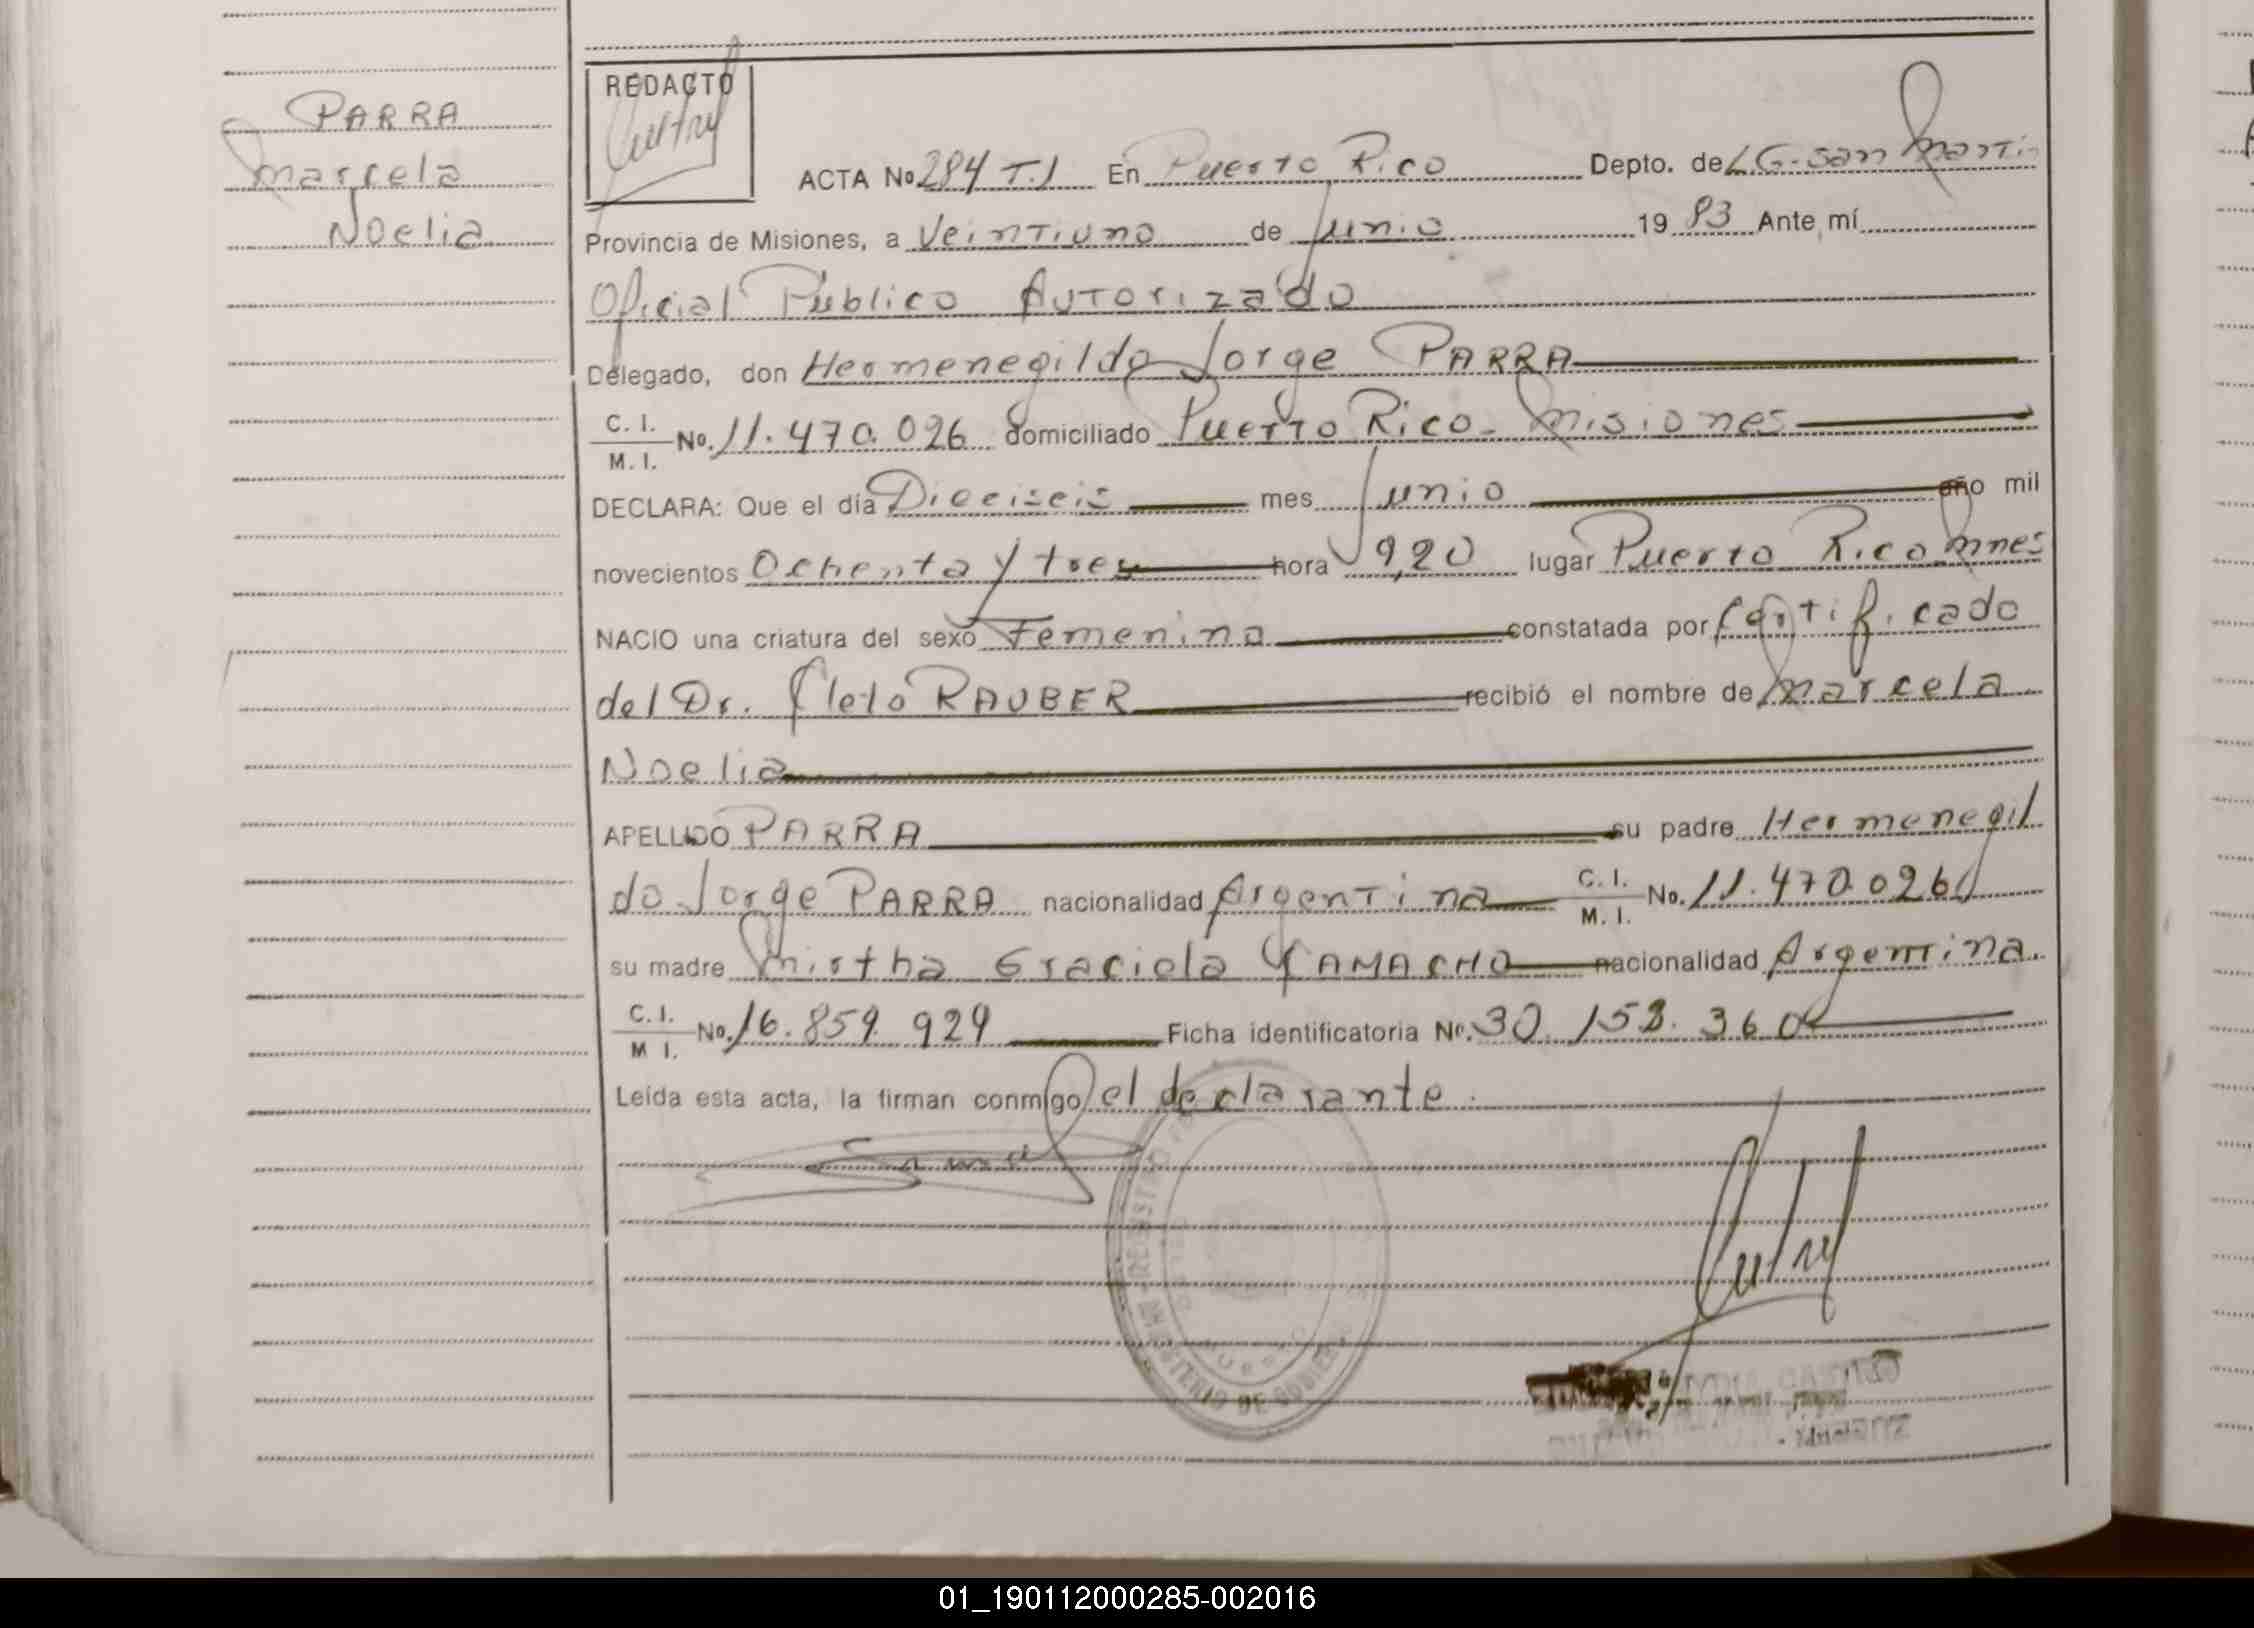 PARRA
Marcela
Noelia
REDACTO
ACTA No 284 T.I En Puerto Rico Depto. de L.G. San Martin
Provincia de Misiones, a Veintiuno de Junio 19 83 Ante mí
Oficial Público Autorizado
Delegado, don Hermenegildo Jorge PARRA
C. I. / M. I. No. 11.470.026 domiciliado Puerto Rico - Misiones
DECLARA: Que el día Dieciseis mes Junio año mil
novecientos Ochenta y tres hora 9,20 lugar Puerto Rico Mnes
NACIO una criatura del sexo Femenino constatada por Certificado
del Dr. Cleto RAUBER recibió el nombre de Marcela
Noelia
APELLIDO PARRA su padre Hermenegil
do Jorge PARRA nacionalidad Argentina C. I. / M. I. No. 11.470.026
su madre Mirtha Graciela CAMACHO nacionalidad Argentina.
C. I. / M I. No. 16.859.929 Ficha identificatoria Nº. 30.153.360
Leída esta acta, la firman conmigo el declarante.
REGISTRO
MINISTERIO DE GOBIERNO
01_190112000285-002016